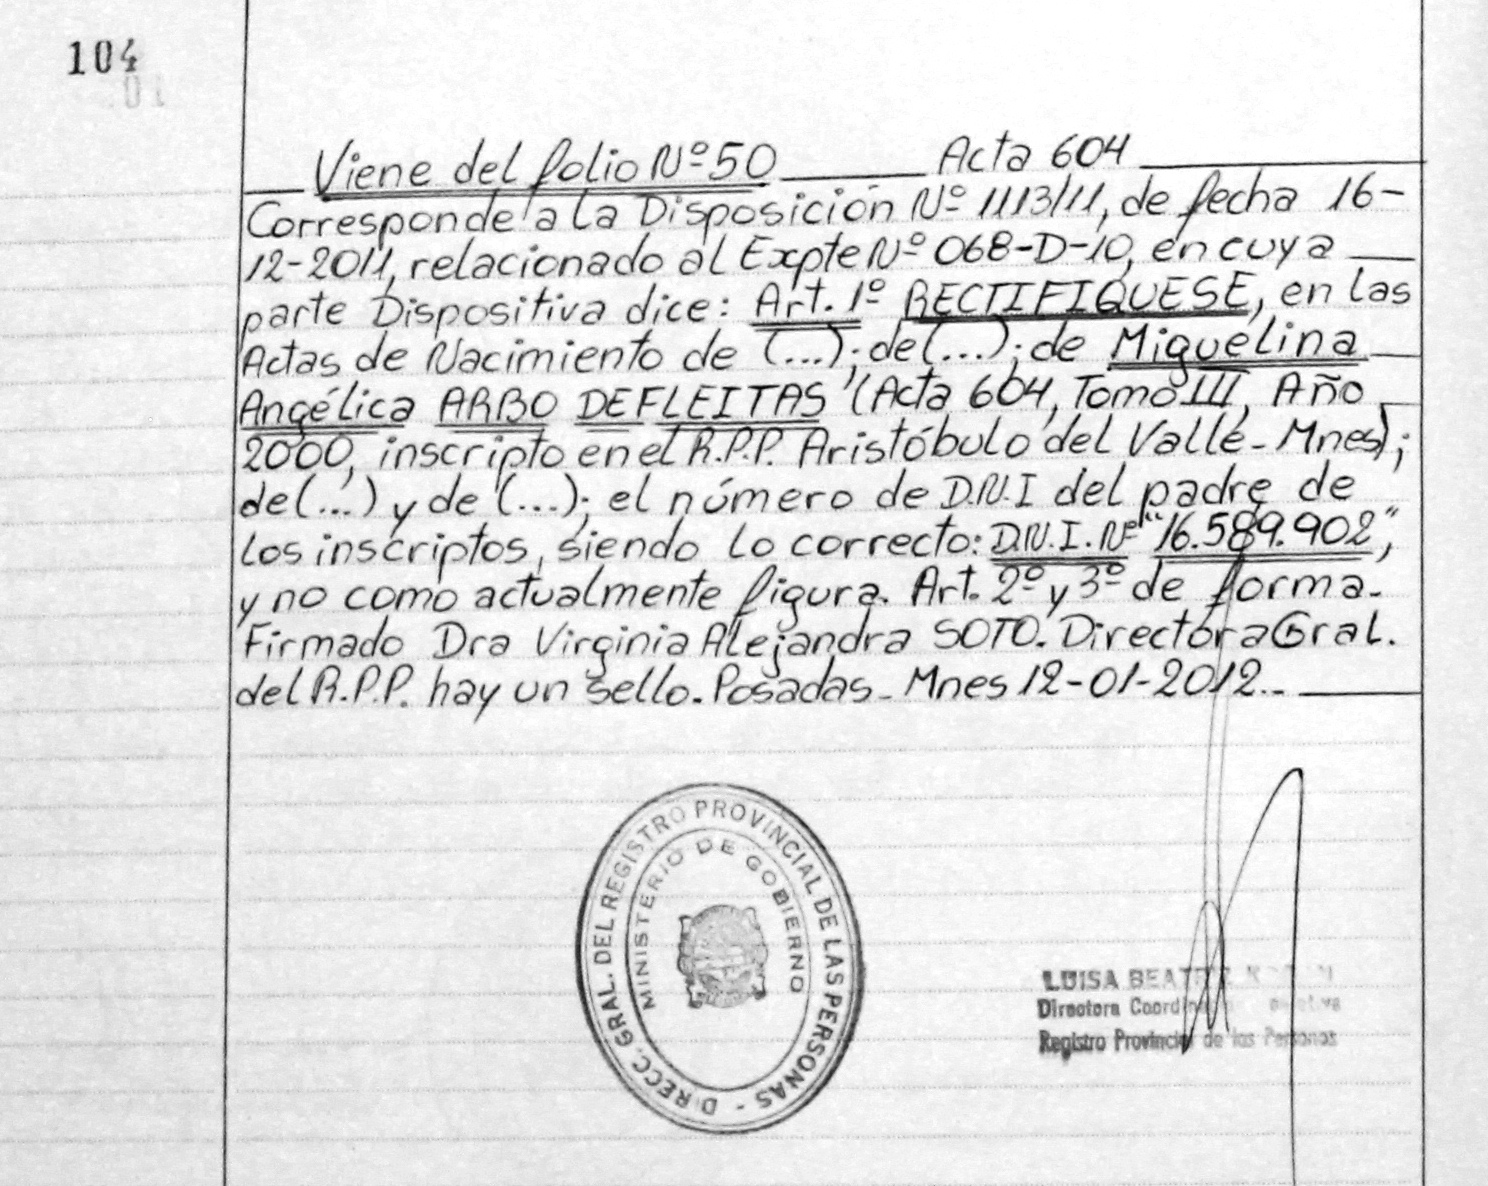 104
01
Viene del folio Nº 50 Acta 604
Corresponde a la Disposición Nº 1113/11, de fecha 16-
12-2011, relacionado al Expte Nº 068-D-10, en cuya
parte Dispositiva dice: Art. 1º RECTIFIQUESE, en las
Actas de Nacimiento de (...); de (...); de Miguelina
Angélica ARBO DEFLEITAS (Acta 604, Tomo III, Año
2000, inscripto en el R.P.P. Aristóbulo del Valle - Mnes);
de (...) y de (...); el número de D.N.I del padre de
los inscriptos, siendo lo correcto: D.N.I. Nº "16.589.902",
y no como actualmente figura. Art. 2º y 3º de forma.
Firmado Dra Virginia Alejandra SOTO. Directora Gral.
del R.P.P. hay un sello. Posadas - Mnes 12-01-2012.-
DIRECC. GRAL. DEL REGISTRO PROVINCIAL DE LAS PERSONAS -
MINISTERIO DE GOBIERNO
LUISA
Directora
Registro Provincial de las Personas